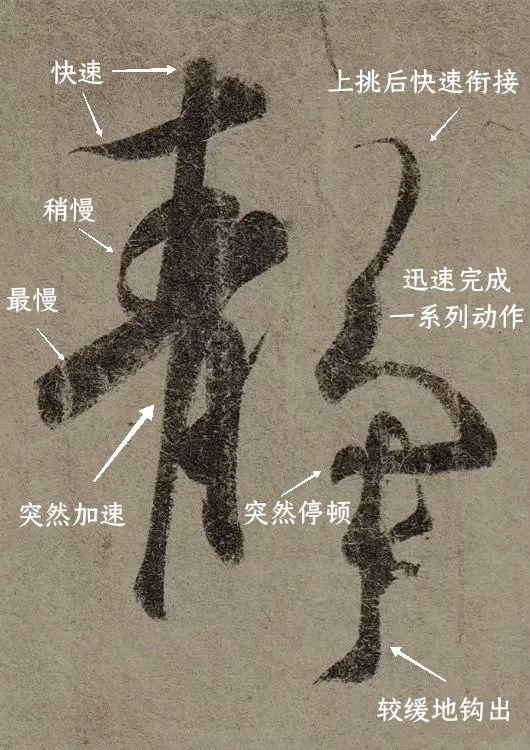 快速
上挑后快速衔接
稍慢
最慢
迅速完成
一系列动作
突然加速
突然停顿
较缓地钩出
静